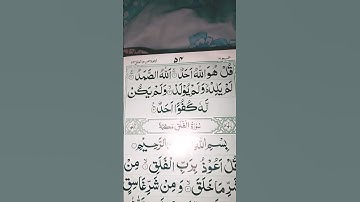 ۵۴
قُلْ هُوَ اللّٰهُ اَحَدٌ ۚ اَللّٰهُ الصَّمَدُ ۚ
لَمْ يَلِدْ ۙ وَلَمْ يُوْلَدْ ۙ وَلَمْ يَكُنْ
لَّهٗ كُفُوًا اَحَدٌ
سُوْرَةُ الْفَلَقِ مَكِّيَّةٌ
بِسْمِ اللّٰهِ الرَّحِيْمِ
قُلْ اَعُوْذُ بِرَبِّ الْفَلَقِ ۙ مِنْ
شَرِّ مَا خَلَقَ ۙ وَمِنْ شَرِّ غَاسِقٍ